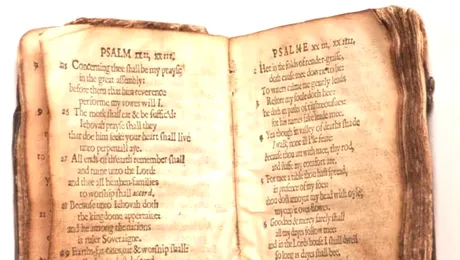 PSALM xxii, xxiii.
25 Concerning thee shall be my prayse
in the great assembly:
before them that him reverence
performe my vowes will I.
26 The meek shall eat & be suffic'd:
Iehovah prayse shall they
that doe him seek: your heart shall live
unto perpetuall aye.
27 All ends of th'earth remember shall
and turne unto the Lord:
and thee all heathen-families
to worship shall accord.
28 Because unto Iehovah doth
the kingdome appertaine:
and he among the nations
is ruler Soveraigne.
29 Earths-fat-ones, eat & worship shall
PSALME xxiii, xxiiii.
2 Hee in the folds of tender-grasse,
doth cause mee down to lie:
To waters calme me gently leads
3 Restore my soule doth hee:
he doth in paths of righteousnes:
for his names sake leade mee.
4 Yea though in valley of deaths shade
I walk, none ill I'le feare:
because thou art with mee, thy rod,
and staffe my comfort are.
5 For mee a table thou hast spread,
in presence of my foes:
thou dost annoynt my head with oyle,
my cup it over-flowes.
6 Goodnes & mercy surely shall
all my dayes follow mee:
and in the Lords house I shall dwell
so long as dayes shall bee.